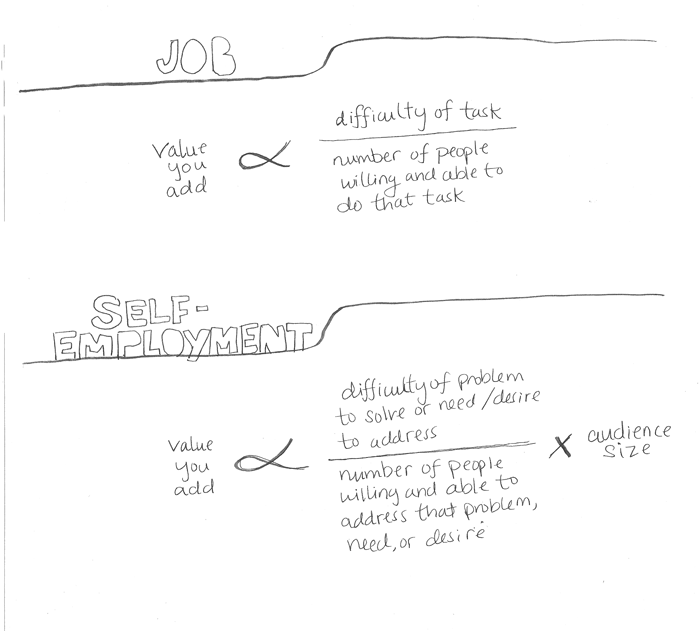 JOB
value
you
add
∝
difficulty of task
number of people
willing and able to
do that task
SELF-
EMPLOYMENT
value
you
add
∝
difficulty of problem
to solve or need/desire
to address
number of people
willing and able to
address that problem,
need, or desire
X
audience
size